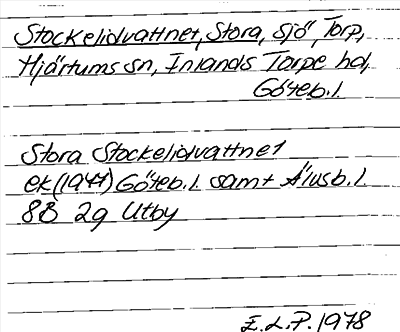 Stockelidvattnet, Stora, sjö, Torp,
Hjärtums sn, Inlands Torpe hd,
Göteb. l.
Stora Stockelidvattnet
ek (1941) Göteb. l. samt Älvsb. l.
8B 2g Utby
E. L. P. 1978